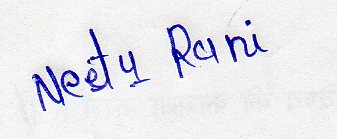 Neety Rani